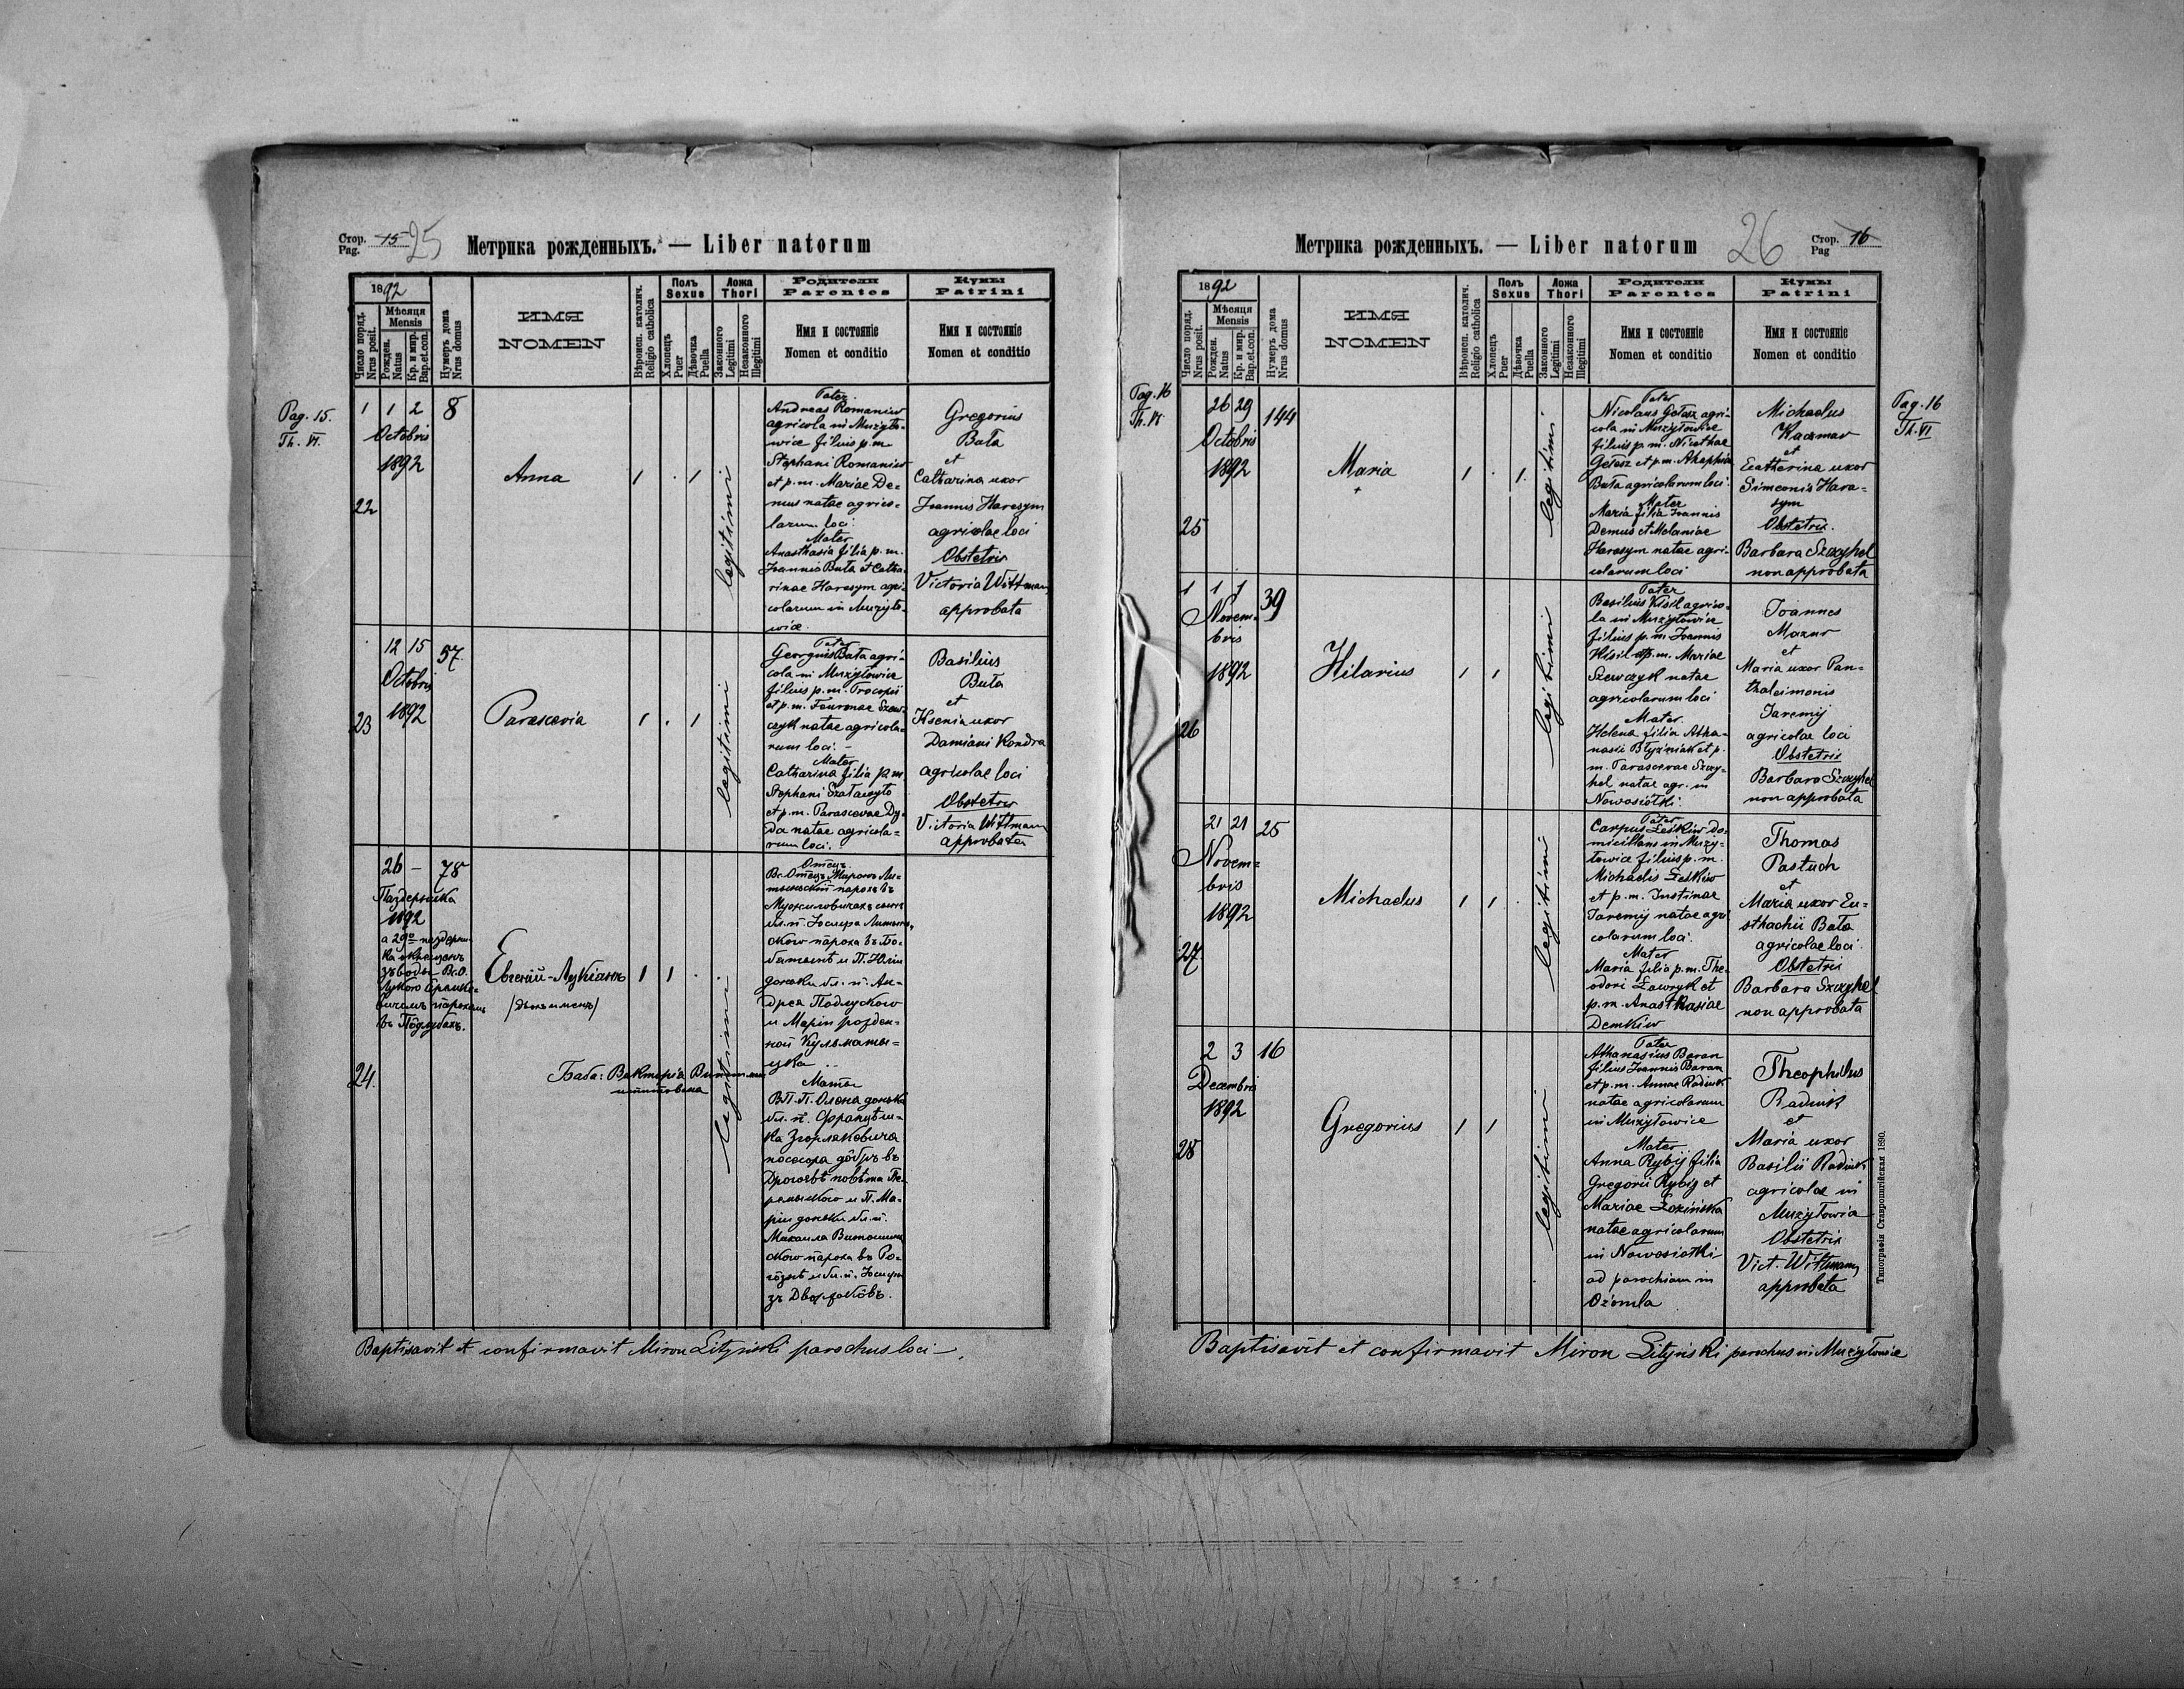 Стор. 15 25
Pag.
Метрика рожденныхъ. — Liber natorum
1892
Число поряд.
Nrus posit.
Мѣсяця
Mensis
Рожден.
Natus
Кр. и мир.
Bap.et.con.
Нумеръ дома
Nrus domus
ИМЯ
NOMEN
Вѣроисп. католич.
Religio catholica
Полъ
Sexus
Хлопецъ
Puer
Дѣвочка
Puella
Ложа
Thori
Законного
Legitimi
Незаконного
Illegitimi
Родители
Parentes
Имя и состояніе
Nomen et conditio
Кумы
Patrini
Имя и состояніе
Nomen et conditio
Pag. 15.
Th. VI.
1 1 2 8
Octobris
1892
22
Anna
1 . 1
legitimi
Pater
Andreas Romaniw
agricola in Mużyło-
wice filius p.m.
Stephani Romaniw
et p.m. Mariae De-
mus natae agrico-
larum loci.
Mater
Anasthasia filia p.m.
Joannis Buta et Catha-
rinae Harasym agri-
colarum in Mużyło-
wice.
Gregorius
Buta
et
Catharina uxor
Joannis Harasym
agricolae loci
Obstetrix
Victoria Wittmann
approbata
12 15 57.
Octobris
1892
23
Parascevia
1 . 1
legitimi
Pater
Georgius Buta agri-
cola in Mużyłowice
filius p.m. Procopii
et p.m.
czyk natae agricola-
rum loci. -
Mater
Catharina filia p.m.
Stephani
et p.m. Parascevae Dy-
da natae agricola-
rum loci.
Basilius
Buta
et
Ksenia uxor
Damiani Kondra
agricolae loci
Obstetrix
Victoria Wittmann
approbata
26 — 78
1892
24.
Евгеній-Лукіанъ
/двохъ именъ/
1 1
legitimi
Баба: Викторія
Отецъ
Вс. Отецъ Миронъ Ли-
тыньскій парохъ въ
Мужиловичахъ сынъ
бл. п. Іосифа Литынь-
ского пароха въ Бо-
и П. Юліи
доньки бл. п. Ан-
дрея Подлуского
и Маріи розден-
ной
Мати
ВП. П. Олена донька
бл. п. Францѣш-
ка Згорлякевича
посесора добръ въ
повѣта Пе-
ремыского и П. Ма-
ріи доньки бл. п.
Михаила
ского пароха въ Ро-
и бл. п.
зъ
Baptisavit et confirmavit Miron Lityński parochus loci —.
Метрика рожденныхъ. — Liber natorum
26
Стор. 16
Pag
1892
Число поряд.
Nrus posit.
Мѣсяця
Mensis
Рожден.
Natus
Кр. и мир.
Bap.et.con.
Нумеръ дома
Nrus domus
ИМЯ
NOMEN
Вѣроисп. католич.
Religio catholica
Полъ
Sexus
Хлопецъ
Puer
Дѣвочка
Puella
Ложа
Thori
Законного
Legitimi
Незаконного
Illegitimi
Родители
Parentes
Имя и состояніе
Nomen et conditio
Кумы
Patrini
Имя и состояніе
Nomen et conditio
Pag. 16
Th. VI
26 29 144
Octobris
1892
25
Maria
+
1 . 1.
legitimi
Pater
Nicolaus Gełasz agri-
cola in Mużyłowice
filius p.m. Nicethae
Gełasz et p.m. Ahaphia
Buta agricolarum loci.
Mater
Maria filia Joannis
Demus et Melaniae
Harasym natae agri-
colarum loci
Michaelus
Kaczmar
et
Ecatherina uxor
Simeonis Hara-
sym
Obstetrix.
Barbara Szczyhel
non approbata
Pag. 16
Th. VI
1 1 1 39
Novem-
bris
1892
26
Hilarius
1 1
legitimi
Pater
Basilius Kisil agrico-
la in Mużyłowice
filius p.m. Joannis
Kisil et p.m. Mariae
Szewczyk natae
agricolarum loci
Mater.
Helena filia Atha-
nasii Błyźniak et p.
m. Parascevae Szczy-
hel natae agr. in
Nowosiółki.
Joannes
Mazur
et
Maria uxor Pan-
thaleimonis
Jaremij
agricolae loci
Obstetrix
Barbara Szczyhel
non approbata
21 21 25
Novem-
bris
1892
27
Michaelus
1 1
legitimi
Pater
Carpus Leśkiw do-
micilians in Muży-
łowice filius p.m.
Michaelis Leśkiw
et p.m. Justinae
Jaremij natae agri-
colarum loci.
Mater
Maria filia p.m. The-
odori Ławryk et
p.m. Anasthasiae
Demkiw
Thomas
Pastuch
et
Maria uxor Eu-
sthachii Buta
agricolae loci.
Obstetrix
Barbara Szczyhel
non approbata
2 3 16
Decembris
1892
28
Gregorius
1 1
legitimi
Pater
Athanasius Baran
filius Joannis Baran
et p.m. Annae Radiuk
natae agricolarum
in Mużyłowice
Mater
Anna Rybij filia
Gregorii Rybij et
Mariae Łozińska
natae agricolarum
in Nowosiółki
ad parochiam in
Ożomla
Theophilus
Radiuk
et
Maria uxor
Basilii Radiuk
agricolae in
Mużyłowice
Obstetrix
Vict. Wittmann
approbata
Baptisavit et confirmavit Miron Lityński parochus in Mużyłowice
Типографія Ставропигійская 1890.